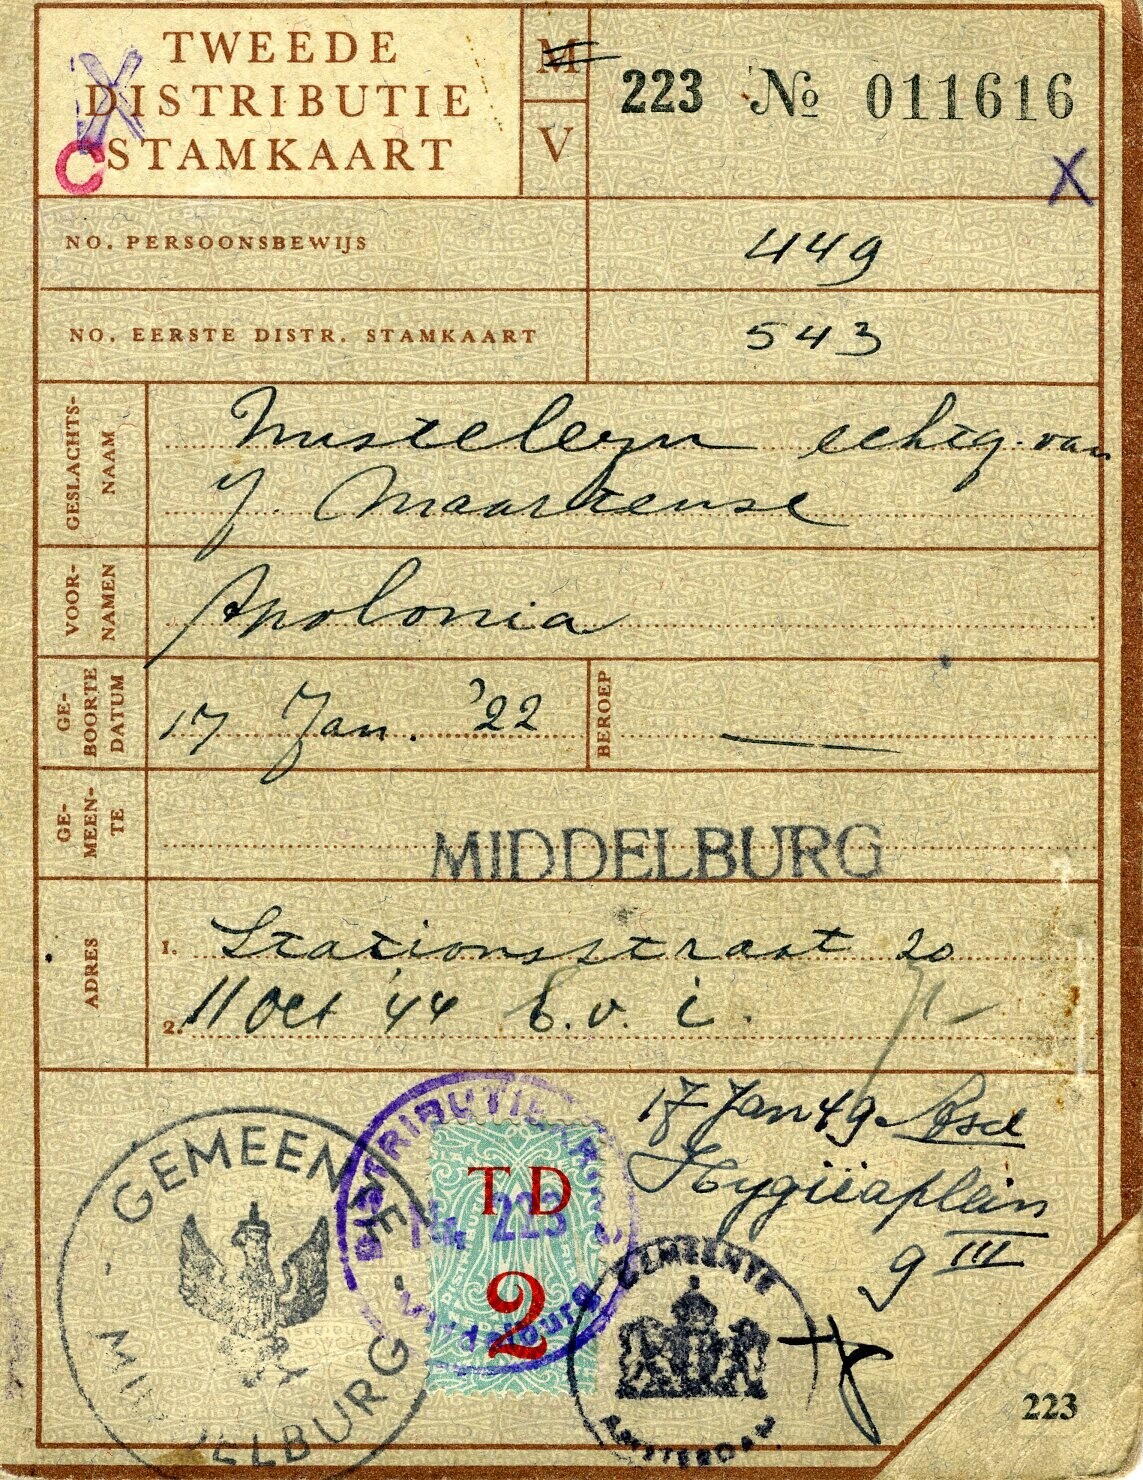 TWEEDE
DISTRIBUTIE
STAMKAART
C
X
M
V
223 No 011616
X
NO. PERSOONSBEWIJS
449
NO. EERSTE DISTR. STAMKAART
543
GESLACHTS-
NAAM
Musteleyn echtg. van
J. Maartense
VOOR-
NAMEN
Apolonia
GE-
BOORTE
DATUM
17 Jan. '22
BEROEP
—
GE-
MEEN-
TE
MIDDELBURG
ADRES
1. Stationsstraat 20
2. 11 Oct '44 E.v.i.
17 Jan 49 Asd
Hygiëaplein
9 III
GEMEENTE
MIDDELBURG
DISTRIBUTIEKRING
223
Middelburg
TD
2
GEMEENTE
AMSTERDAM
223